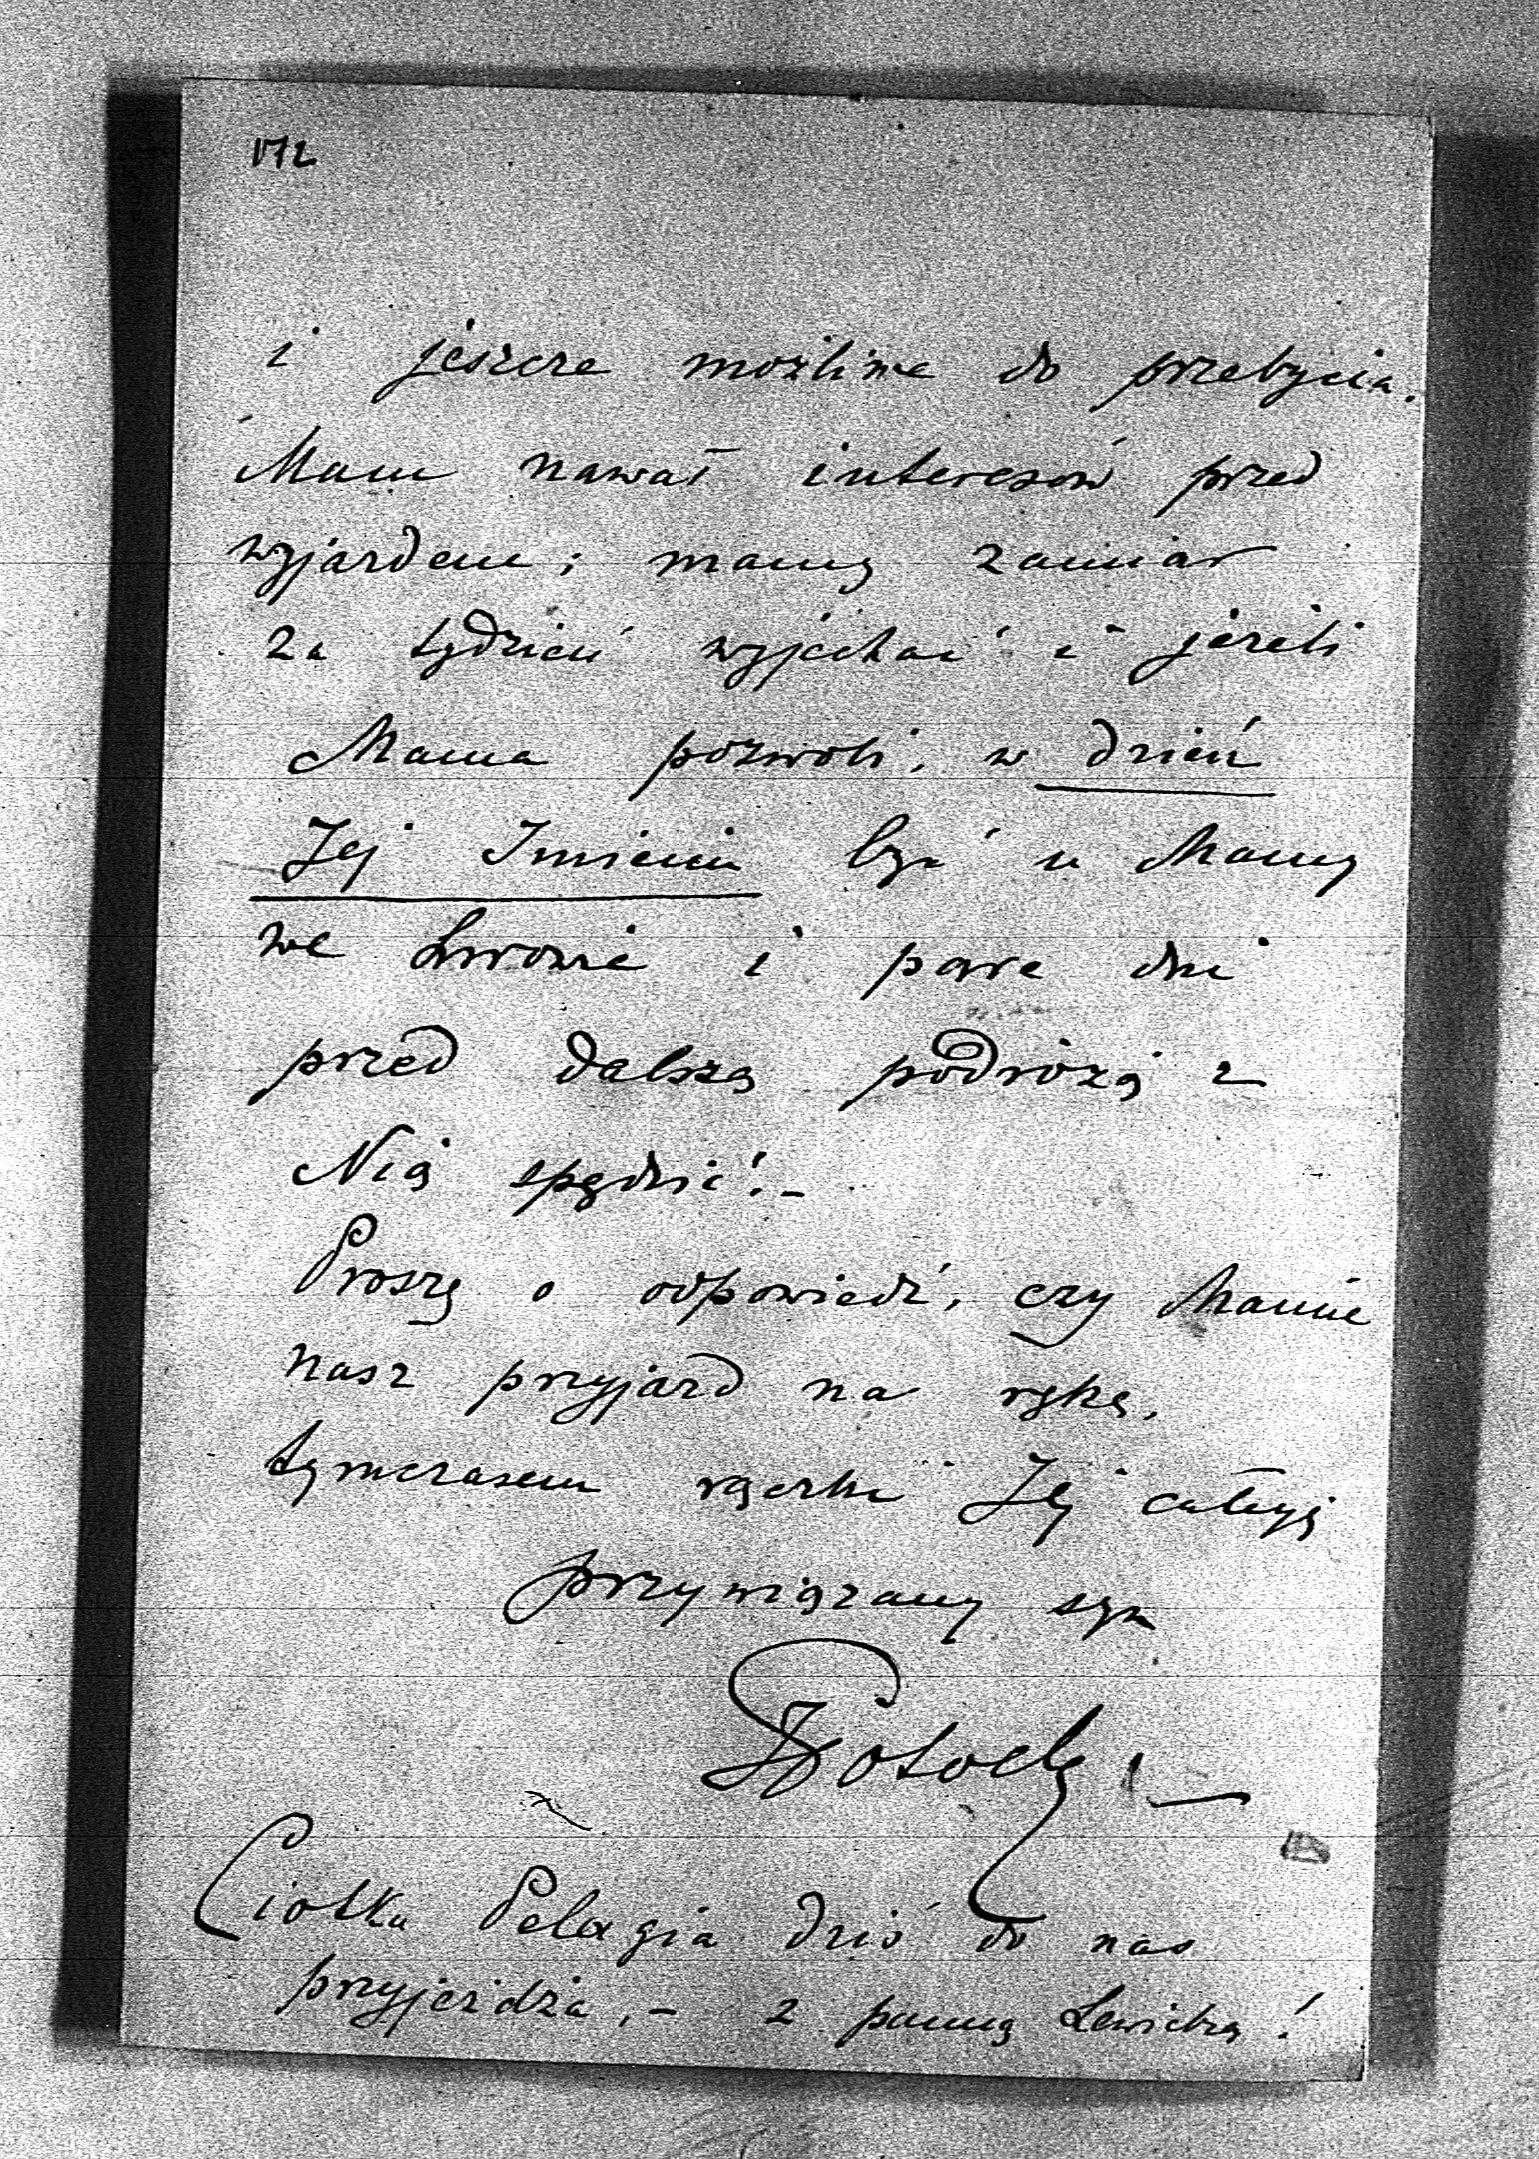 172
i jeszcze możliwe do przebycia.
Mam nawał interesów przed
wyjazdem; mamy zamiar
za tydzień wyjechać i jeżeli
Mama pozwoli, w dzień
Jej Imienia być u Mamy
we Lwowie i parę dni
przed dalszą podróżą z
Nią spędzić. –
Proszę o odpowiedź, czy Mamie
nasz przyjazd na rękę,
tymczasem rączki Jej całuję
przywiązany syn
Potocki
Ciotka Pelagia dziś do nas
przyjeżdża, – z panną Lewicką!